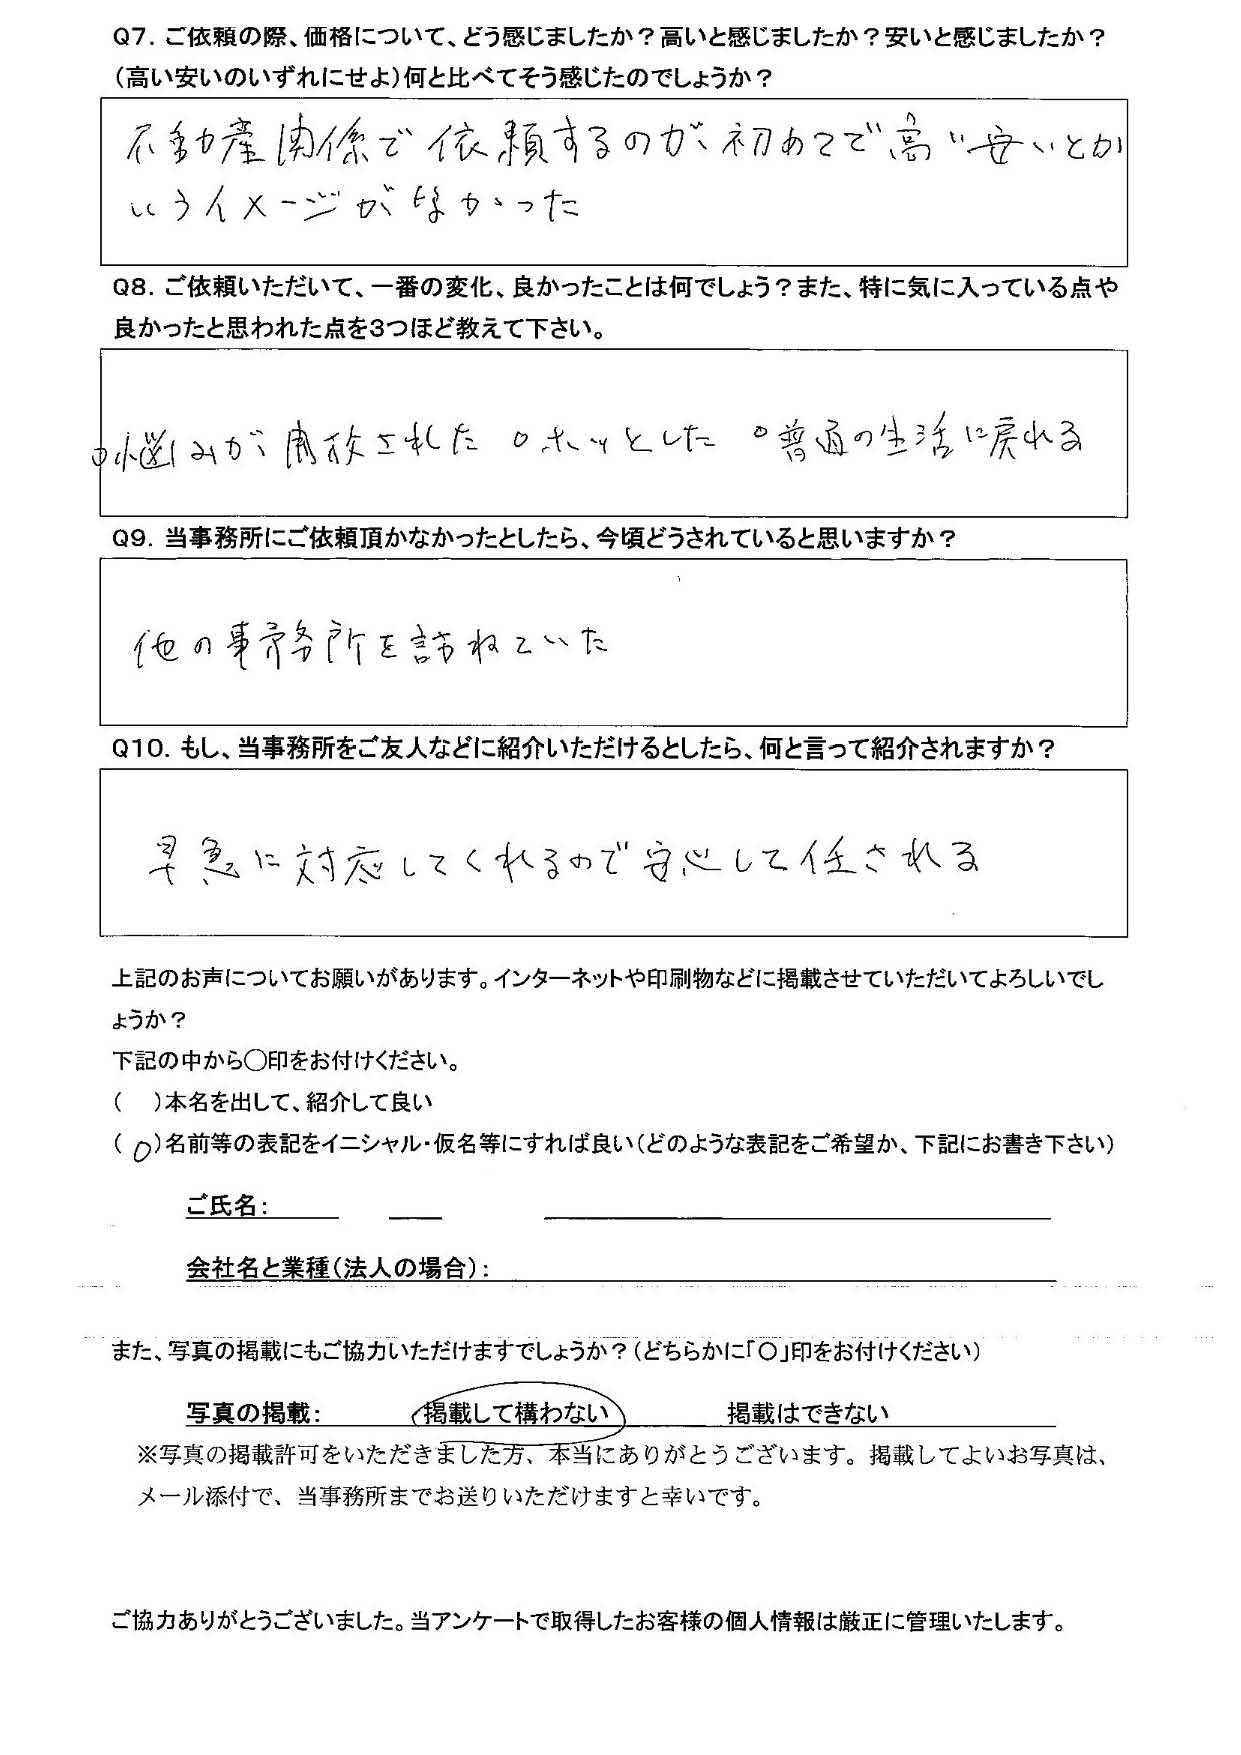 Q7. ご依頼の際、価格について、どう感じましたか？高いと感じましたか？安いと感じましたか？
（高い安いのいずれにせよ）何と比べてそう感じたのでしょうか？
不動産関係で依頼するのが、初めてで高い安いとか
いうイメージがなかった
Q8. ご依頼いただいて、一番の変化、良かったことは何でしょう？また、特に気に入っている点や
良かったと思われた点を3つほど教えて下さい。
○悩みが開放された ○ホッとした ○普通の生活に戻れる
Q9. 当事務所にご依頼頂かなかったとしたら、今頃どうされていると思いますか？
他の事務所を訪ねていた
Q10. もし、当事務所をご友人などに紹介いただけるとしたら、何と言って紹介されますか？
早急に対応してくれるので安心して任される
上記のお声についてお願いがあります。インターネットや印刷物などに掲載させていただいてよろしいでし
ょうか？
下記の中から〇印をお付けください。
（　）本名を出して、紹介して良い
（○）名前等の表記をイニシャル・仮名等にすれば良い（どのような表記をご希望か、下記にお書き下さい）
ご氏名：
会社名と業種（法人の場合）：
また、写真の掲載にもご協力いただけますでしょうか？（どちらかに「〇」印をお付けください）
写真の掲載： 掲載して構わない 掲載はできない
※写真の掲載許可をいただきました方、本当にありがとうございます。掲載してよいお写真は、
メール添付で、当事務所までお送りいただけますと幸いです。
ご協力ありがとうございました。当アンケートで取得したお客様の個人情報は厳正に管理いたします。